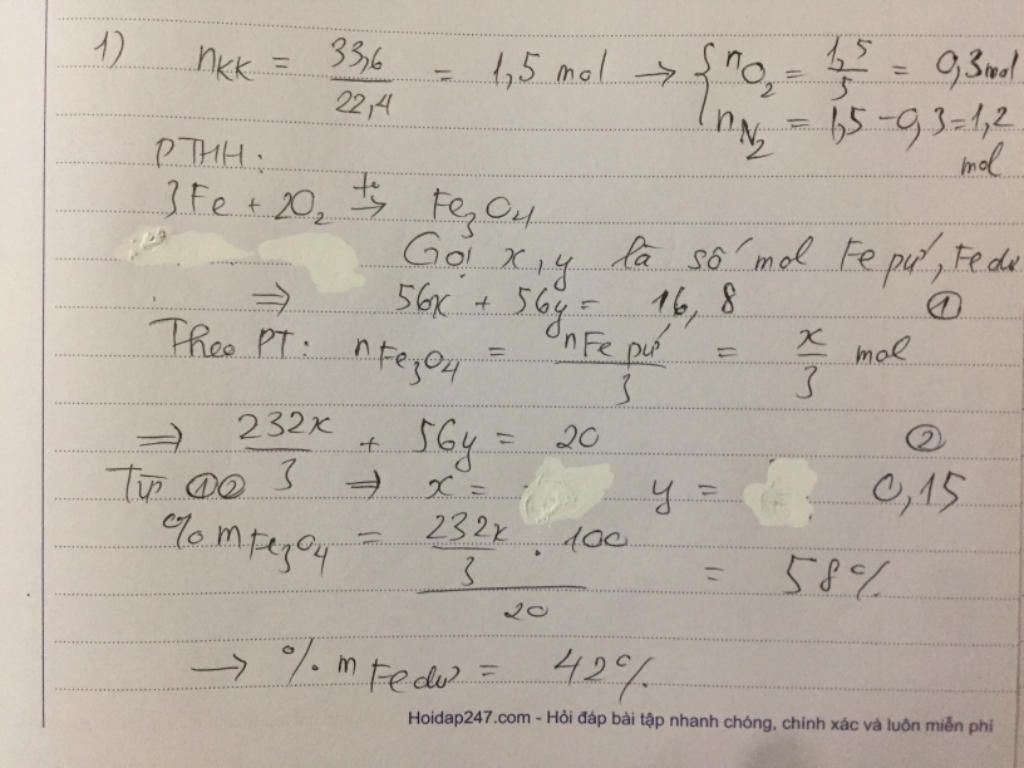 1) nKK = 33,6/22,4 = 1,5 mol → { nO₂ = 1,5/5 = 0,3 mol
nN₂ = 1,5 - 0,3 = 1,2 mol
PTHH:
3Fe + 2O₂ →(t°) Fe₃O₄
Gọi x, y là số mol Fe pứ, Fe dư
⇒ 56x + 56y = 16,8 ①
Theo PT: nFe₃O₄ = nFe pứ/3 = x/3 mol
⇒ 232x/3 + 56y = 20 ②
Từ ①② ⇒ x = y = 0,15
%mFe₃O₄ = (232x/3 . 100)/20 = 58%
→ %mFe dư = 42%
Hoidap247.com - Hỏi đáp bài tập nhanh chóng, chính xác và luôn miễn phí